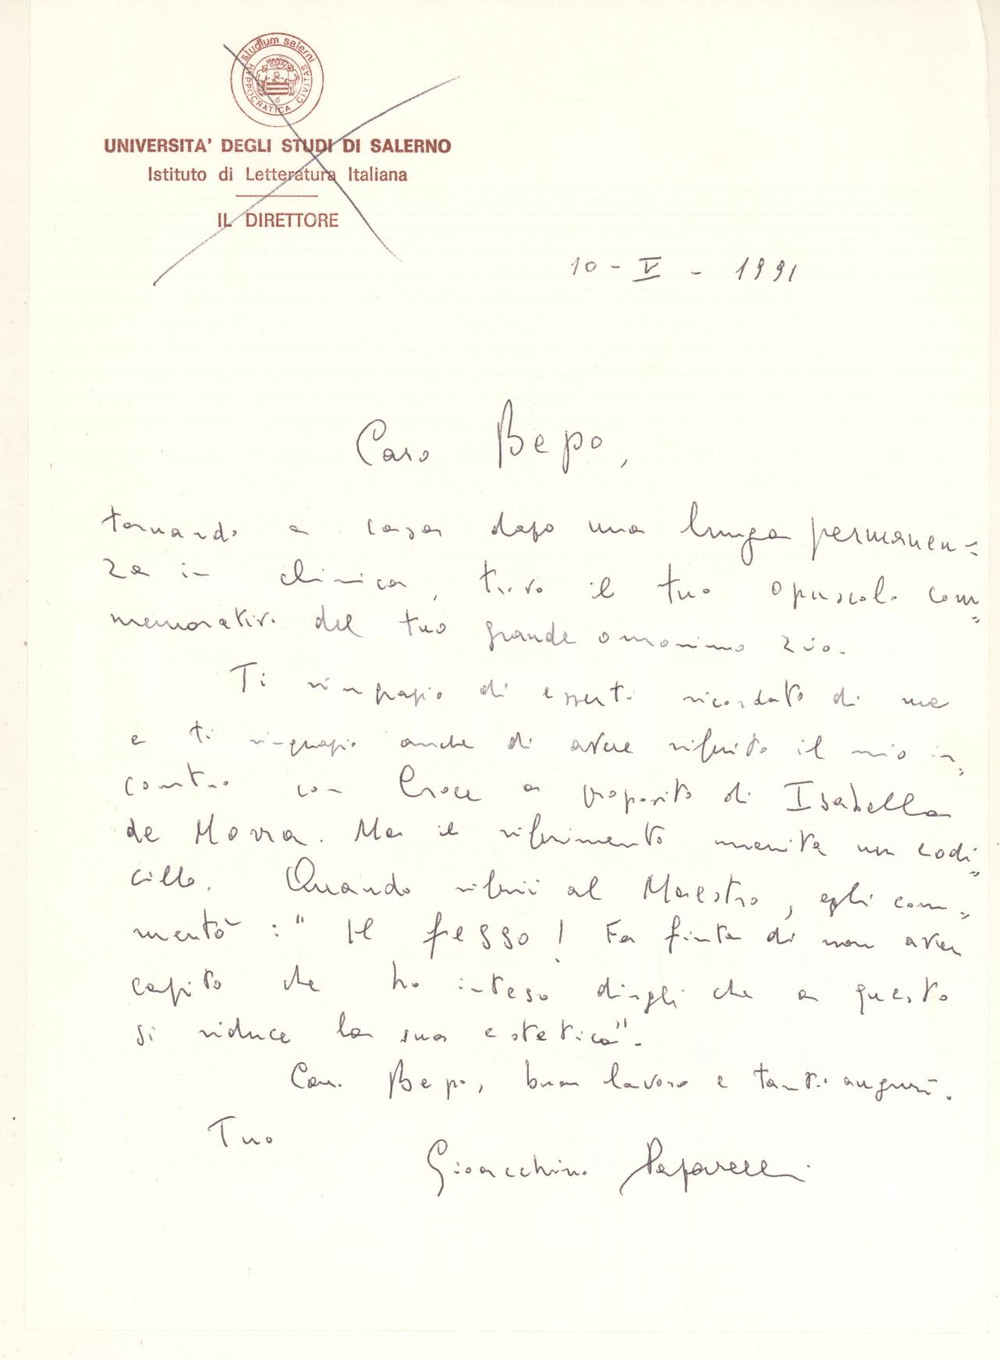 studium salerni
HIPPOCRATICA CIVITAS
UNIVERSITA' DEGLI STUDI DI SALERNO
Istituto di Letteratura Italiana
IL DIRETTORE
10 - V - 1991
Caro Bepo,
tornando a casa dopo una lunga permanen=
za in clinica, trovo il tuo opuscolo com=
memorativo del tuo grande omonimo zio.
Ti ringrazio di esserti ricordato di me
e ti ringrazio anche di avere riferito il mio in=
contro con Croce a proposito di Isabella
de Morra. Ma il riferimento merita un codi=
cillo. Quando riferii al Maestro, egli com=
mentò: "Il fesso! Fa finta di non aver
capito che ho inteso dirgli che a questo
si riduce la sua estetica".
Caro Bepo, buon lavoro e tanti auguri.
Tuo
Gioacchino Paparelli